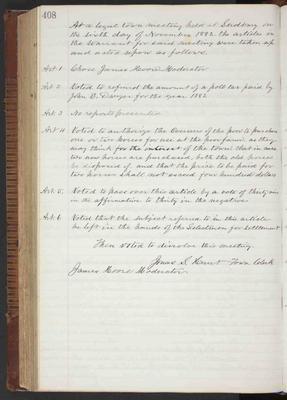 408
At a legal town meeting held at Sudbury on
the sixth day of November 1882 the articles in
the Warrant for said meeting were taken up
and acted upon as follows.
Art. 1 Chose James Moore Moderator
Art. 2 Voted to refund the amount of a poll tax paid by
John B. Dwyer for the year 1882
Art. 3 No reports presented
Art. 4 Voted to authorize the Overseers of the poor to purchase
one or two horses for use at the poor farm as they
may think for the interest of the town that in case
two new horses are purchased, both the old horses
be disposed of, and that the price to be paid for
two horses shall not exceed four hundred dollars
Art. 5. Voted to pass over this article by a vote of thirty six
in the affirmative to thirty in the negative
Art. 6 Voted that the subject referred to in this article
be left in the hands of the Selectmen for settlement
Then voted to dissolve this meeting.
Jonas S. Hunt Town Clerk
James Moore Moderator